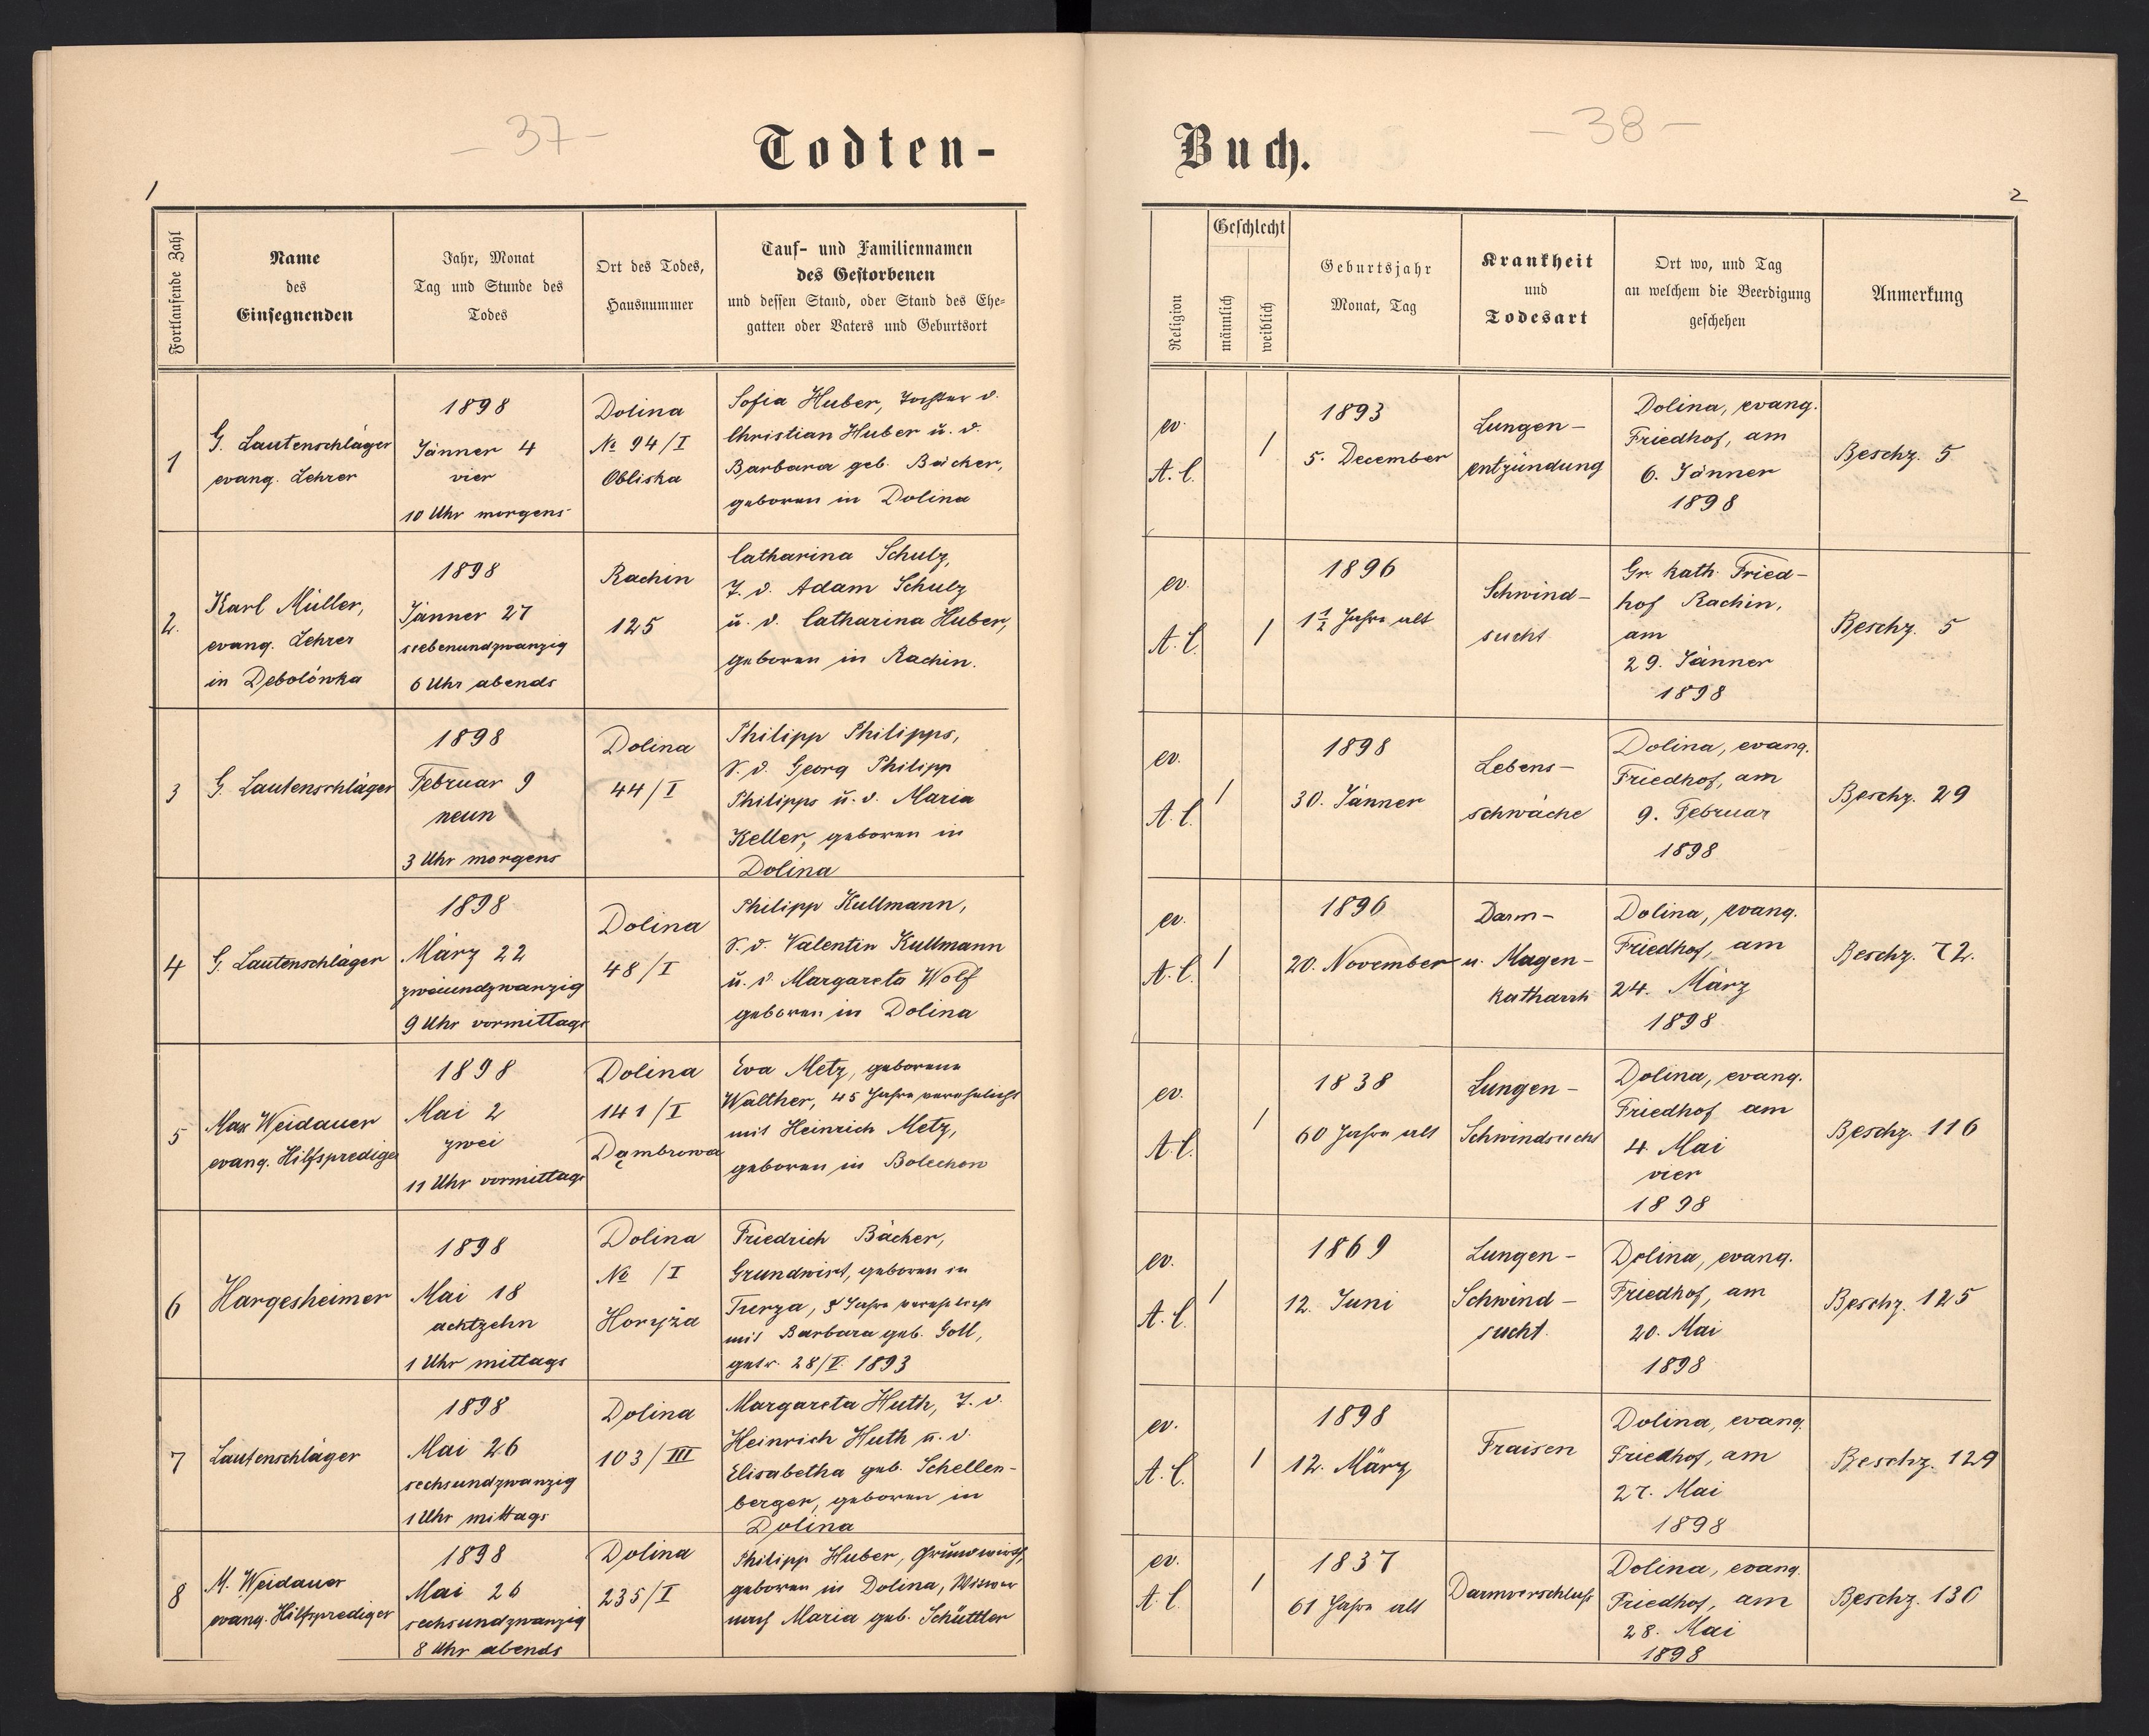 - 37 -
Todten-
1
Fortlaufende Zahl
Name
des
Einsegnenden
Jahr, Monat
Tag und Stunde des
Todes
Ort des Todes,
Hausnummer
Tauf- und Familiennamen
des Gestorbenen
und dessen Stand, oder Stand des Ehe-
gatten oder Vaters und Geburtsort
1
G. Lautenschläger
evang. Lehrer
1898
Jänner 4
vier
10 Uhr morgens
Dolina
№ 94/I
Obliska
Sofia Huber, Tochter d.
Christian Huber u. d.
Barbara geb. Bäcker,
geboren in Dolina
2.
Karl Müller,
evang. Lehrer
in Debolówka
1898
Jänner 27
siebenundzwanzig
6 Uhr abends
Rachin
125
Catharina Schulz,
T. d. Adam Schulz
u. d. Catharina Huber,
geboren in Rachin.
3
G. Lautenschläger
1898
Februar 9
neun
3 Uhr morgens
Dolina
44/I
Philipp Philipps,
S. d. Georg Philipp
Philipps u. d. Maria
Keller, geboren in
Dolina
4
G. Lautenschläger
1898
März 22
zweiundzwanzig
9 Uhr vormittags
Dolina
48/I
Philipp Kullmann,
S. d. Valentin Kullmann
u. d Margareta Wolf
geboren in Dolina
5
Max Weidauer
evang. Hilfsprediger
1898
Mai 2
zwei
11 Uhr vormittags
Dolina
141/I
Dąmbrowa
Eva Metz, geborene
Walther, 45 Jahre verehelicht
mit Heinrich Metz,
geboren in Bolechow
6
Hargesheimer
1898
Mai 18
achtzehn
1 Uhr mittags
Dolina
№ /I
Horyża
Friedrich Bäcker,
Grundwirt, geboren in
Turza, 5 Jahre verehelicht
mit Barbara geb. Goll,
getr. 28/V. 1893
7
Lautenschläger
1898
Mai 26
sechsundzwanzig
1 Uhr mittags
Dolina
103/III
Margareta Huth, T. d.
Heinrich Huth u. d.
Elisabetha geb. Schellen-
berger, geboren in
Dolina
8
M. Weidauer
evang. Hilfsprediger
1898
Mai 26
sechsundzwanzig
8 Uhr abends
Dolina
235/I
Philipp Huber, Grundwirth,
geboren in Dolina, Witwer
nach Maria geb. Schüttler
- 38 -
Buch.
2
Religion
Geschlecht
männlich
weiblich
Geburtsjahr
Monat, Tag
Krankheit
und
Todesart
Ort wo, und Tag
an welchem die Beerdigung
geschehen
Anmerkung
ev.
A. C.
1
1893
5. December
Lungen-
entzündung
Dolina, evang.
Friedhof, am
6. Jänner
1898
Beschz. 5
ev.
A. C.
1
1896
1½ Jahre alt
Schwind-
sucht
Gr. kath. Fried-
hof Rachin,
am
29. Jänner
1898
Beschz. 5
ev.
A. C.
1
1898
30. Jänner
Lebens-
schwäche
Dolina, evang.
Friedhof, am
9. Februar
1898
Beschz. 29
ev.
A. C.
1
1896
20. November
Darm-
u. Magen-
katharrh
Dolina, evang.
Friedhof, am
24. März
1898
Beschz. 72.
ev.
A. C.
1
1838
60 Jahre alt
Lungen-
Schwindsucht
Dolina, evang.
Friedhof am
4. Mai
vier
1898
Beschz. 116
ev.
A. C.
1
1869
12. Juni
Lungen-
Schwind-
sucht.
Dolina, evang.
Friedhof, am
20. Mai
1898
Beschz. 125
ev.
A. C.
1
1898
12. März
Fraisen
Dolina, evang.
Friedhof, am
27. Mai
1898
Beschz. 129
ev.
A. C.
1
1837
61 Jahre alt
Darmverschluß
Dolina, evang.
Friedhof, am
28. Mai
1898
Beschz. 130